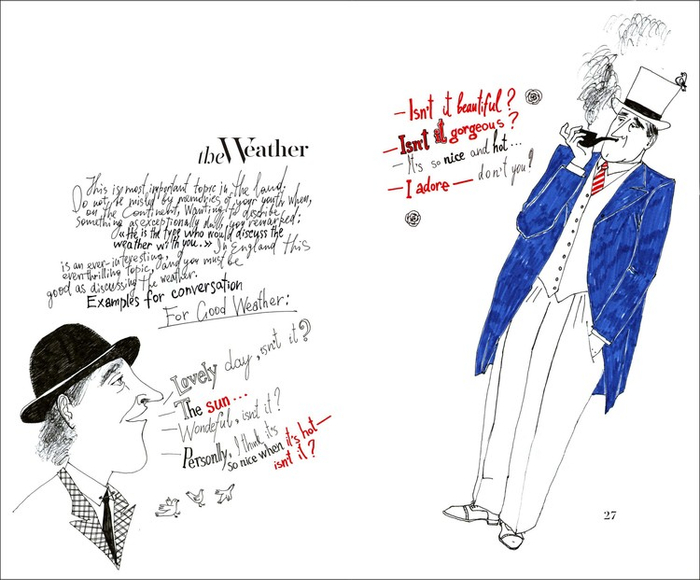 the Weather
This is most important topic in the land.
Do not be misled by memories of your youth when,
on the Continent, wanting to describe
something as exceptionally dull, you remarked:
«He is the type who would discuss the
weather with you.» In England this
is an ever-interesting,
everthrilling topic, and you must be
good as discussing the weather.
Examples for conversation
For Good Weather:
Lovely day, isn't it?
The sun...
Wondeful, isnt it?
Personlly, I think it's
so nice when it's hot—
isn't it?
—Isn't it beautiful?
—Isn't it gorgeous?
—It's so nice and hot...
—I adore— don't you?
27